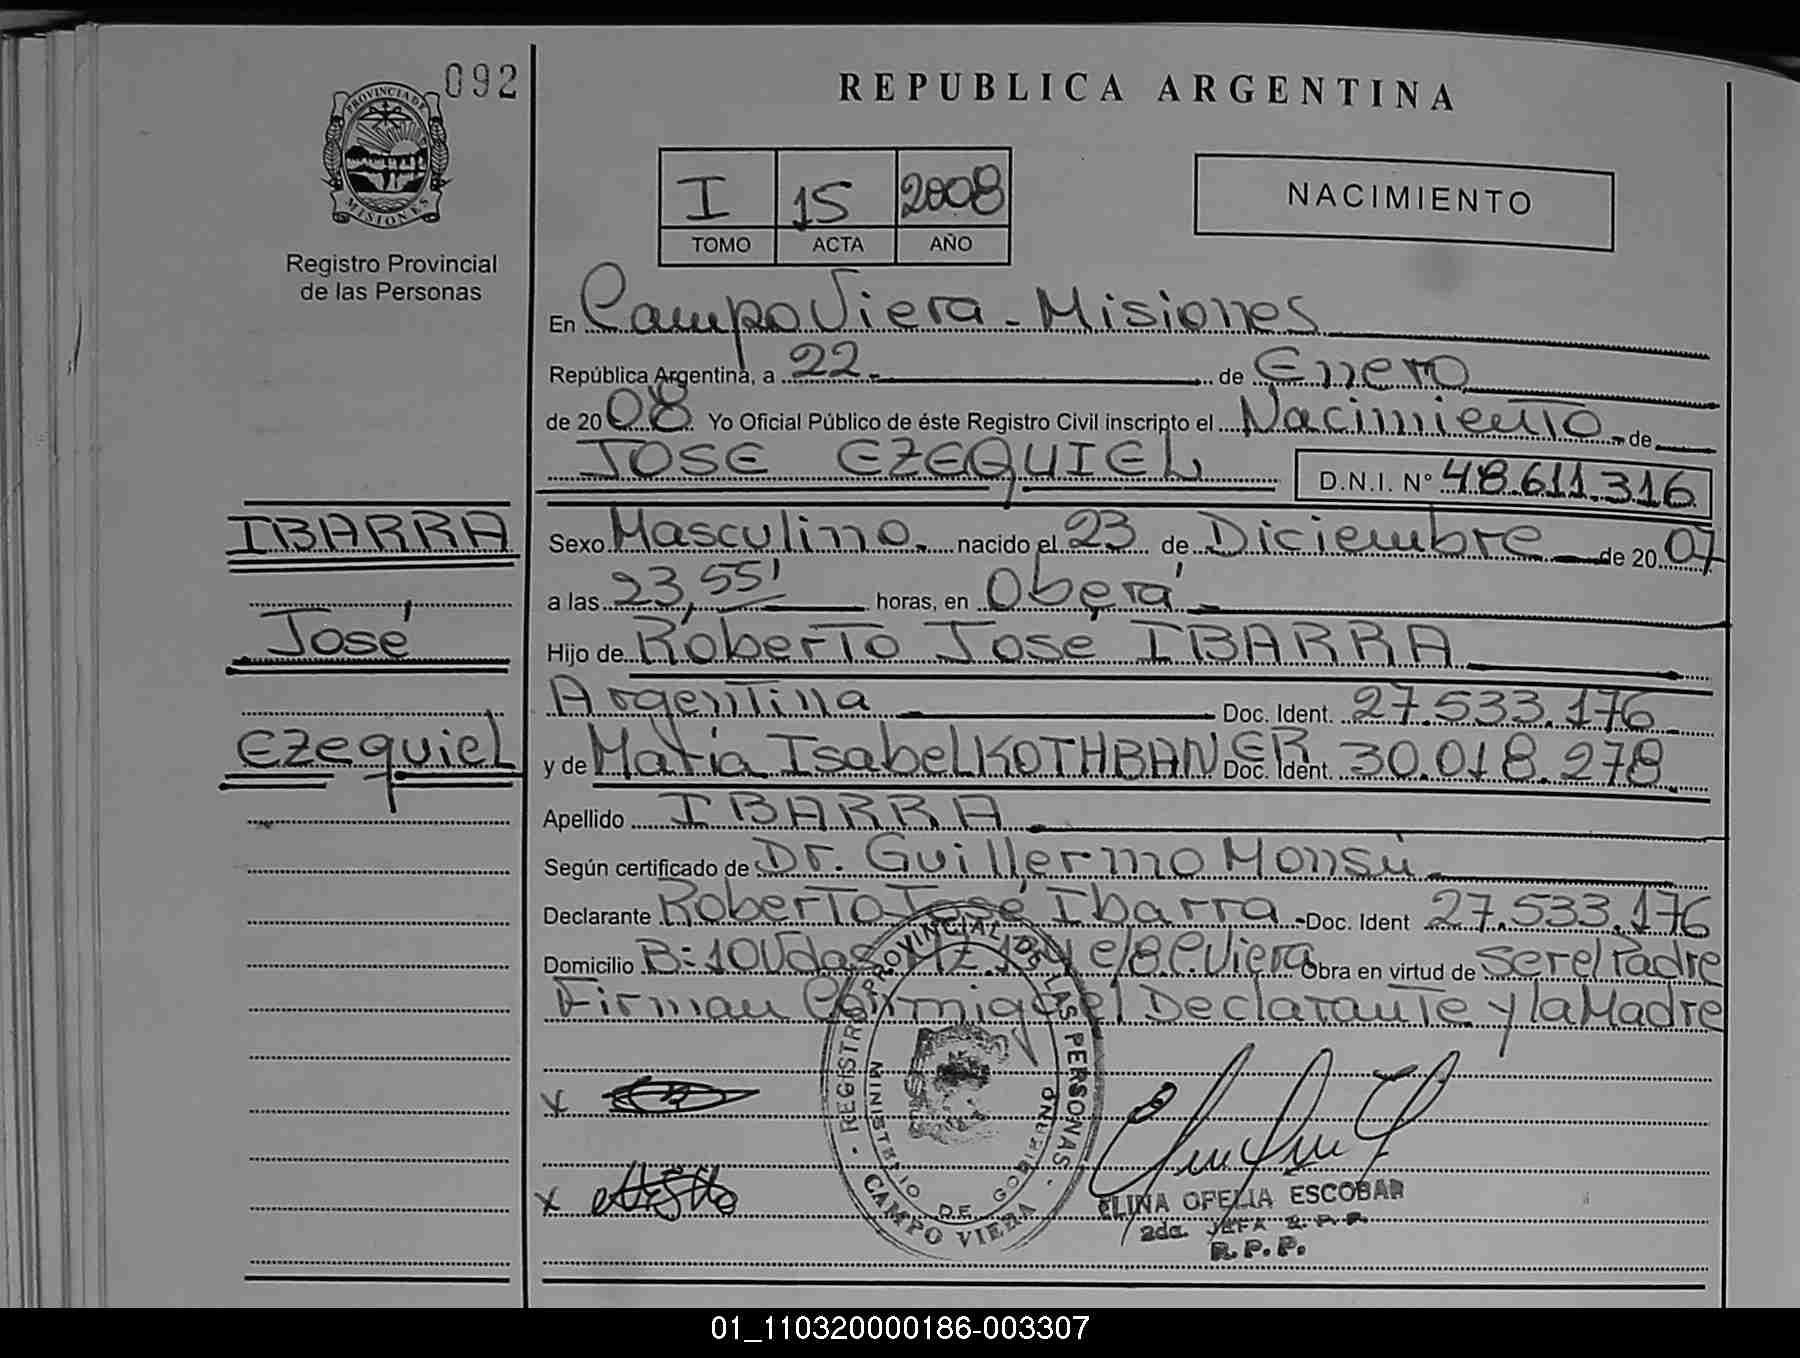 092
PROVINCIA DE
MISIONES
Registro Provincial
de las Personas
REPUBLICA ARGENTINA
I 15 2008
TOMO ACTA AÑO
NACIMIENTO
En Campo Viera - Misiones
República Argentina, a 22 de Enero
de 2008 Yo Oficial Público de éste Registro Civil inscripto el Nacimiento de
JOSE EZEQUIEL D.N.I. N° 48.611.316
IBARRA
José
Ezequiel
Sexo Masculino nacido el 23 de Diciembre de 2007
a las 23,55' horas, en Oberá
Hijo de Roberto José IBARRA
Argentina Doc. Ident. 27.533.176
y de María Isabel KOTHBANER Doc. Ident. 30.018.278
Apellido IBARRA
Según certificado de Dr. Guillermo Monsú
Declarante Roberto José Ibarra - Doc. Ident 27.533.176
Domicilio B: 10 Vdas Mz. 134 e/8 C. Viera Obra en virtud de ser el Padre
Firman Conmigo el Declarante y la Madre
x
x
REGISTRO PROVINCIAL DE LAS PERSONAS
MINISTERIO DE GOBIERNO
CAMPO VIERA
ELINA OFELIA ESCOBAR
2da. JEFA
R.P.P.
01_110320000186-003307